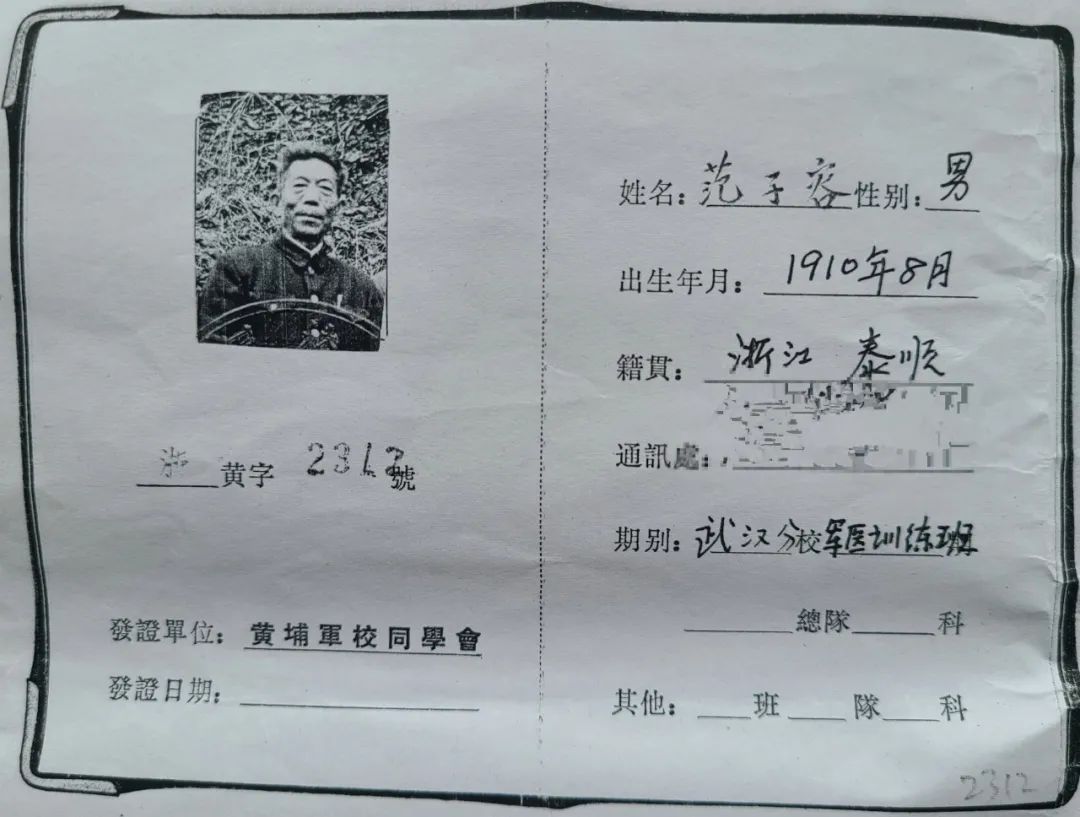 浙黄字 2312號
發證單位：黄埔軍校同學會
發證日期：
姓名：范子容 性别：男
出生年月：1910年8月
籍貫：浙江 泰顺
通訊處：
期别：武汉分校军医训练班
總隊 科
其他： 班 隊 科
2312